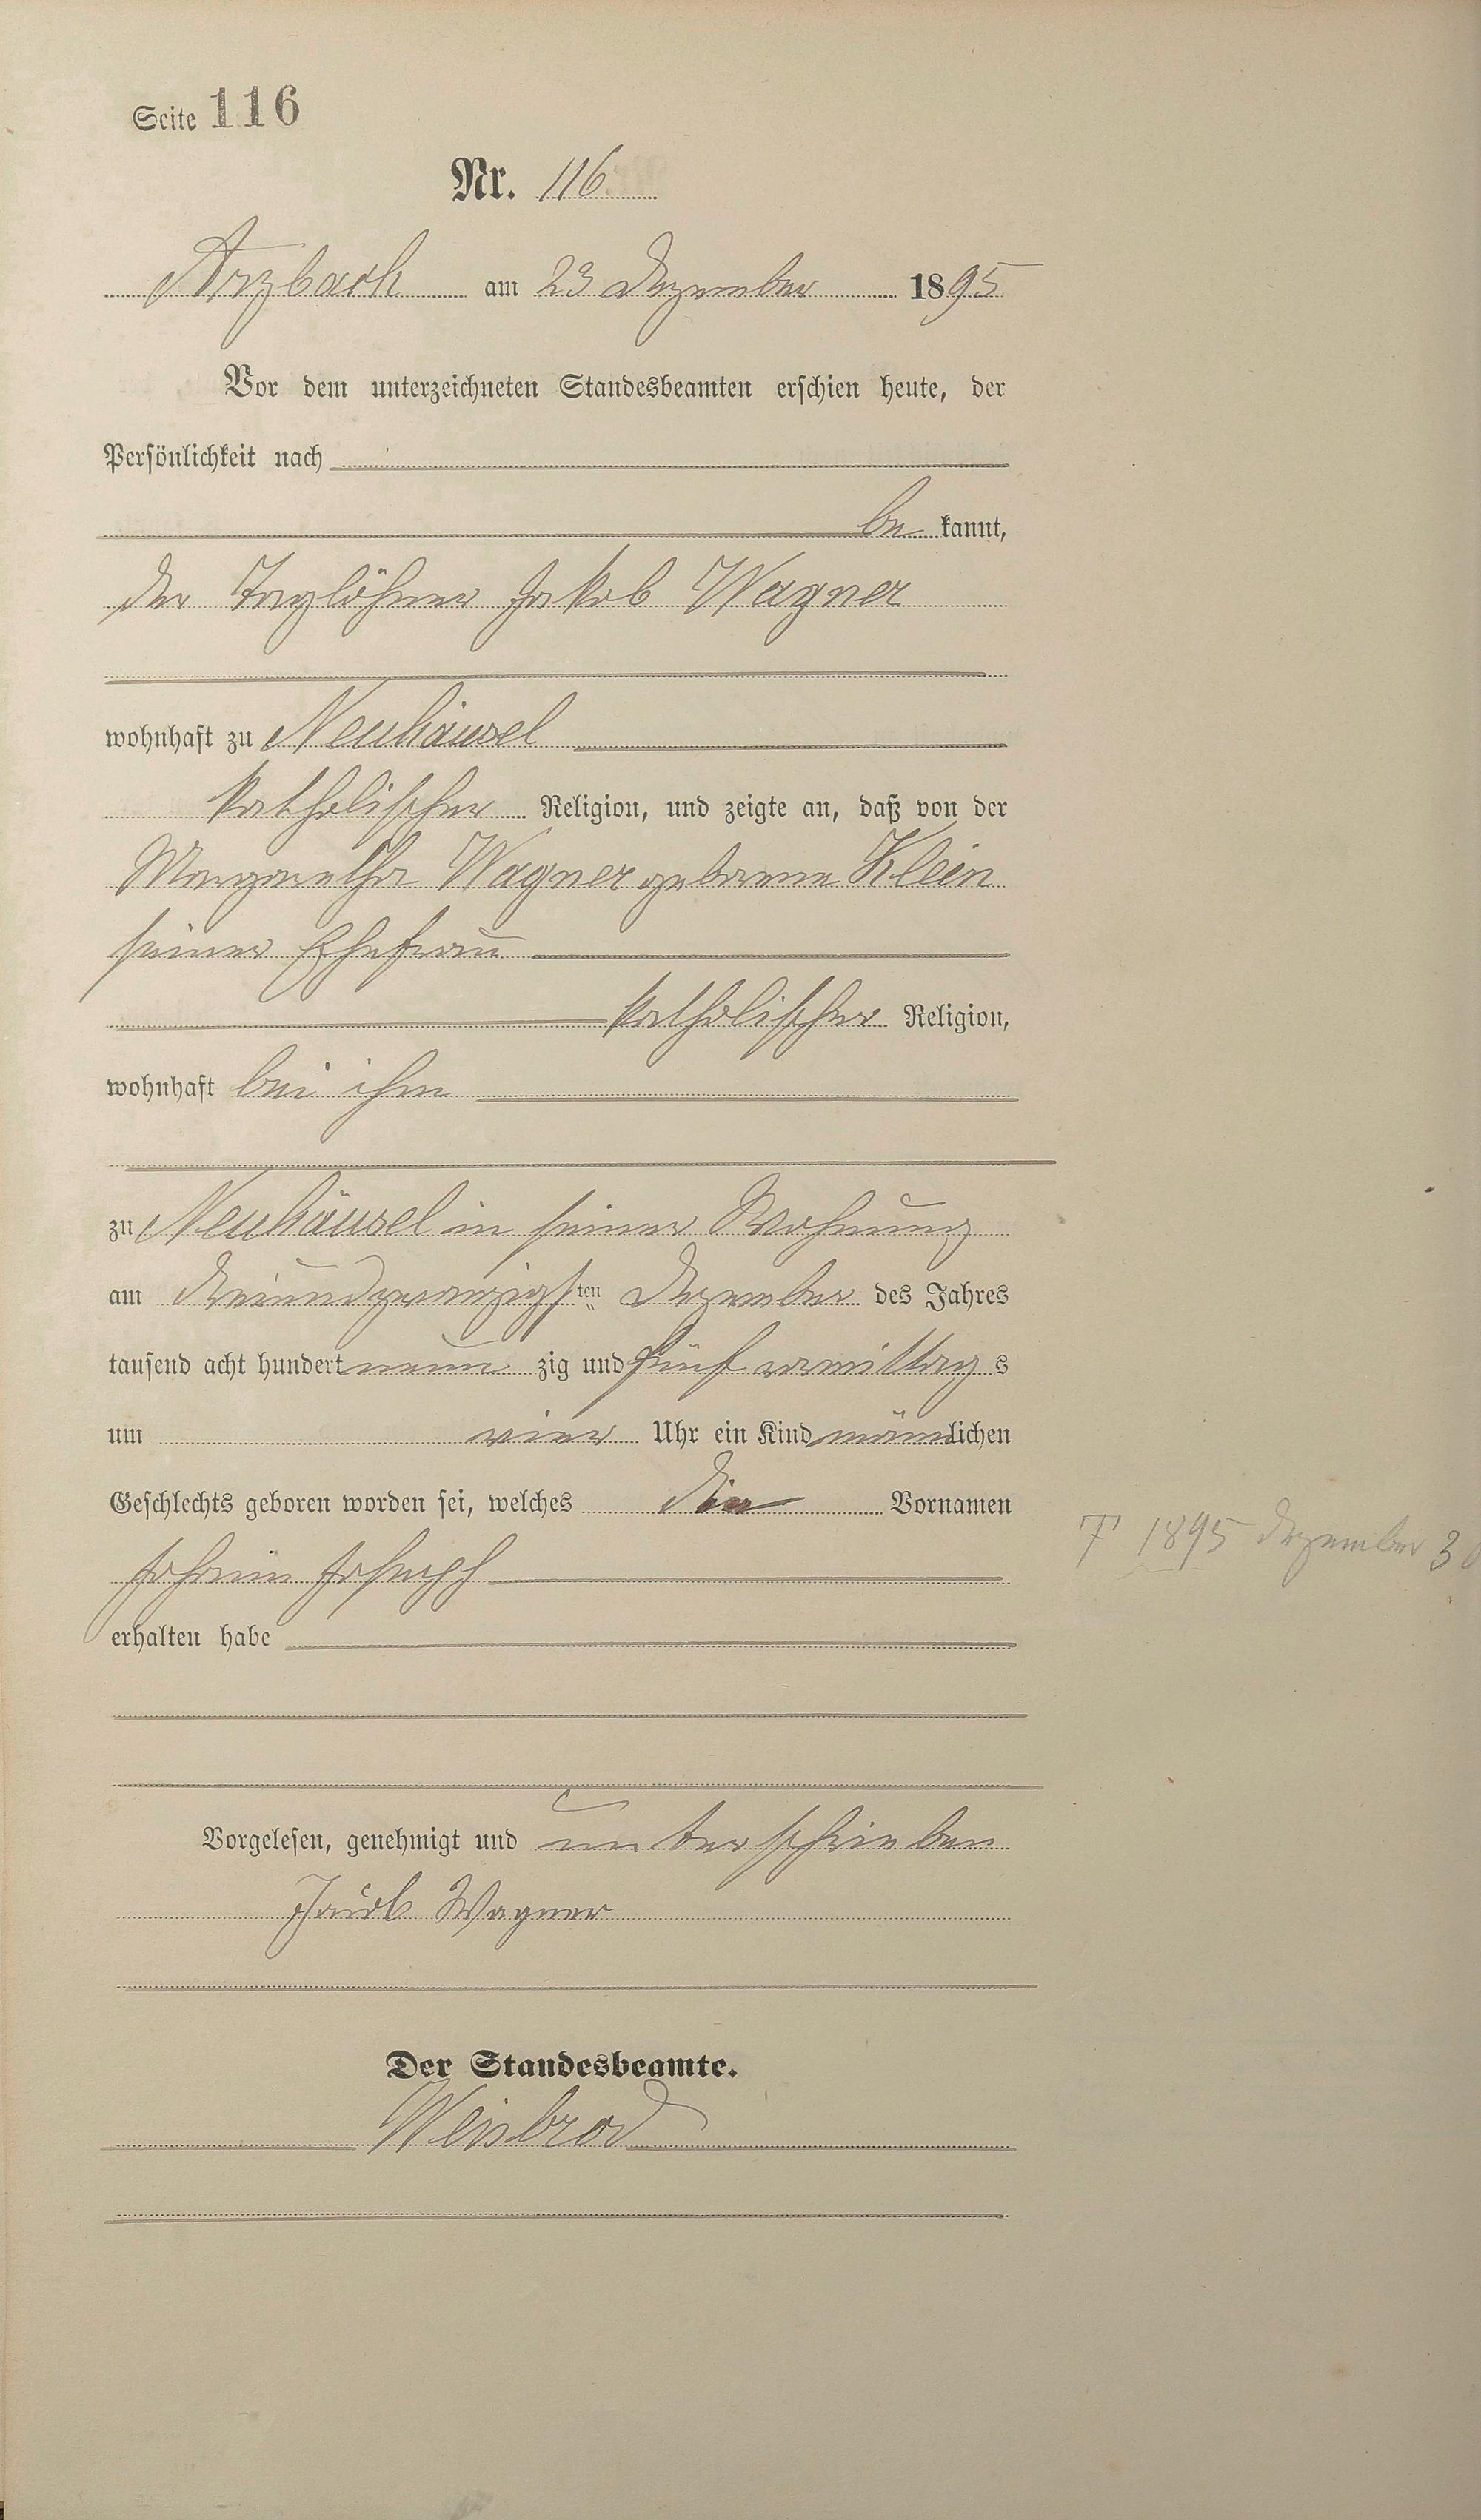 Seite 116
Nr. 116
Arzbach am 23 Dezember 1895
Vor dem unterzeichneten Standesbeamten erschien heute, der
Persönlichkeit nach
be kannt,
der Taglöhner Jakob Wagner
wohnhaft zu Neuhäusel
katholischer Religion, und zeigte an, daß von der
Margaretha Wagner geborene Klein
seiner Ehefrau
katholischer Religion,
wohnhaft bei ihm
zu Neuhäusel in seiner Wohnung
am dreiundzwanzigsten Dezember des Jahres
tausend acht hundert neun zig und fünf vormittags
um vier Uhr ein Kind männlichen
Geschlechts geboren worden sei, welches die Vornamen
Johann Joseph
† 1895 Dezember 30
erhalten habe
Vorgelesen, genehmigt und unterschrieben
Jakob Wagner
Der Standesbeamte.
Weisbrod